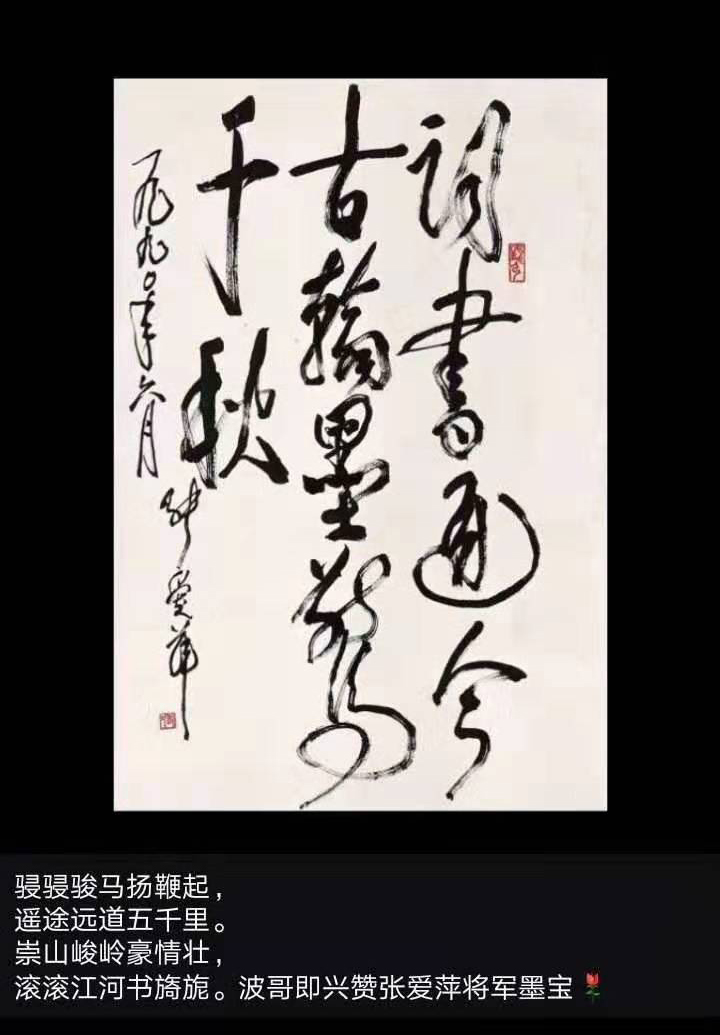 词书通今
古翰墨驚
千秋
一九九〇年六月
张爱萍
骎骎骏马扬鞭起，
遥途远道五千里。
崇山峻岭豪情壮，
滚滚江河书旖旎。波哥即兴赞张爱萍将军墨宝🌹